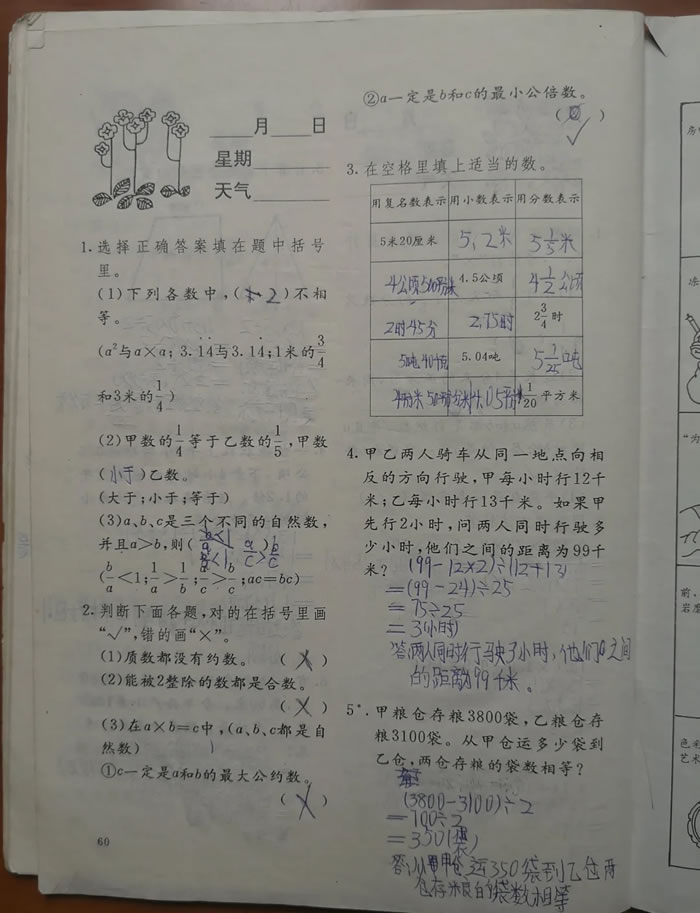 ____月____日
星期
天气
1.选择正确答案填在题中括号
里。
(1)下列各数中,( 2 )不相
等。
(a²与a×a; 3.1̇4̇与3.14;1米的3/4
和3米的1/4)
(2)甲数的1/4等于乙数的1/5,甲数
(小于)乙数。
(大于;小于;等于)
(3)a、b、c是三个不同的自然数,
并且a>b,则( b/a<1 a/c>b/c )
(b/a<1;1/a>1/b;a/c>b/c;ac=bc)
2.判断下面各题,对的在括号里画
“√”,错的画“×”。
(1)质数都没有约数。 (×)
(2)能被2整除的数都是合数。
(×)
(3)在a×b=c中,(a、b、c都是自
然数)
①c一定是a和b的最大公约数。
(×)
60
②a一定是b和c的最小公倍数。
( )
√
3.在空格里填上适当的数。
用复名数表示 用小数表示 用分数表示
5米20厘米 5.2米 5 1/5米
4公顷5000平方米 4.5公顷 4 1/2公顷
2时45分 2.75时 2 3/4时
5吨40千克 5.04吨 5 1/25吨
4平方米5平方分米 4.05平方米 4 1/20平方米
4.甲乙两人骑车从同一地点向相
反的方向行驶,甲每小时行12千
米;乙每小时行13千米。如果甲
先行2小时,问两人同时行驶多
少小时,他们之间的距离为99千
米? (99-12×2)÷(12+13)
=(99-24)÷25
=75÷25
=3(小时)
答:两人同时行驶了3小时,他们之间
的距离99千米。
5*.甲粮仓存粮3800袋,乙粮仓存
粮3100袋。从甲仓运多少袋到
乙仓,两仓存粮的袋数相等?
(3800-3100)÷2
=700÷2
=350(袋)
答:从甲仓运350袋到乙仓两
仓存粮的袋数相等